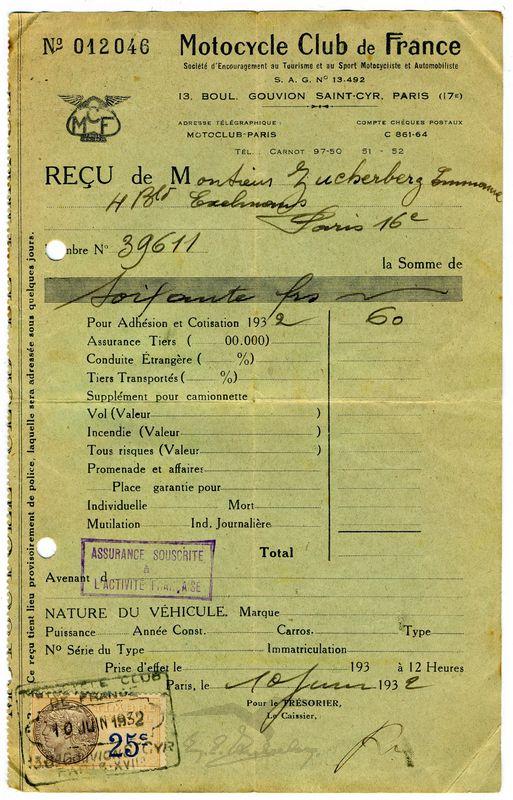 Nº 012046
Motocycle Club de France
Société d'Encouragement au Tourisme et au Sport Motocycliste et Automobiliste
S. A. G. Nº 13.492
13, BOUL. GOUVION SAINT-CYR, PARIS (17e)
MCF
ADRESSE TÉLÉGRAPHIQUE :
MOTOCLUB-PARIS
COMPTE CHÈQUES POSTAUX
C 861-64
TÉL. : CARNOT 97-50 51 - 52
REÇU de Monsieur Zucherberg Emmanuel
4 Bld Exelmans
Paris 16e
mbre Nº 39611
la Somme de
Soixante frs
Pour Adhésion et Cotisation 1932 60
Assurance Tiers ( 00.000)
Conduite Étrangère ( %)
Tiers Transportés ( %)
Supplément pour camionnette
Vol (Valeur )
Incendie (Valeur )
Tous risques (Valeur )
Promenade et affaires
Place garantie pour
Individuelle Mort
Mutilation Ind. Journalière
Total
ASSURANCE SOUSCRITE
à
L'ACTIVITÉ FRANÇAISE
Avenant d
NATURE DU VÉHICULE. Marque
Puissance Année Const. Carros. Type
Nº Série du Type Immatriculation
Prise d'effet le 193 à 12 Heures
Paris, le 10 Juin 1932
Pour le TRÉSORIER,
Le Caissier,
MOTOCYCLE CLUB
DE FRANCE
10 JUIN 1932
25c
13. Bd GOUVION St CYR
PARIS-XVIIe
Ce reçu tient lieu provisoirement de police, laquelle sera adressée sous quelques jours.